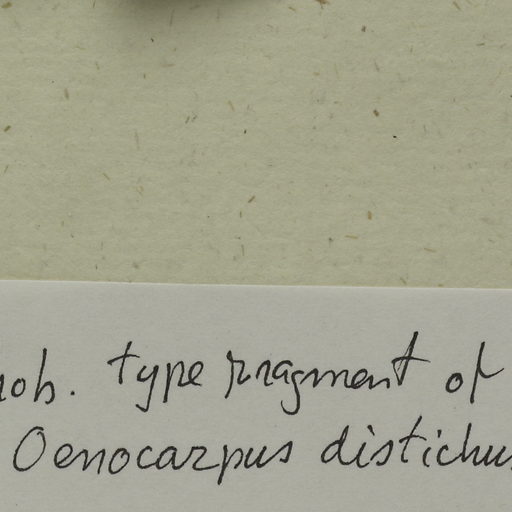 type fragment of
Oenocarpus distichus